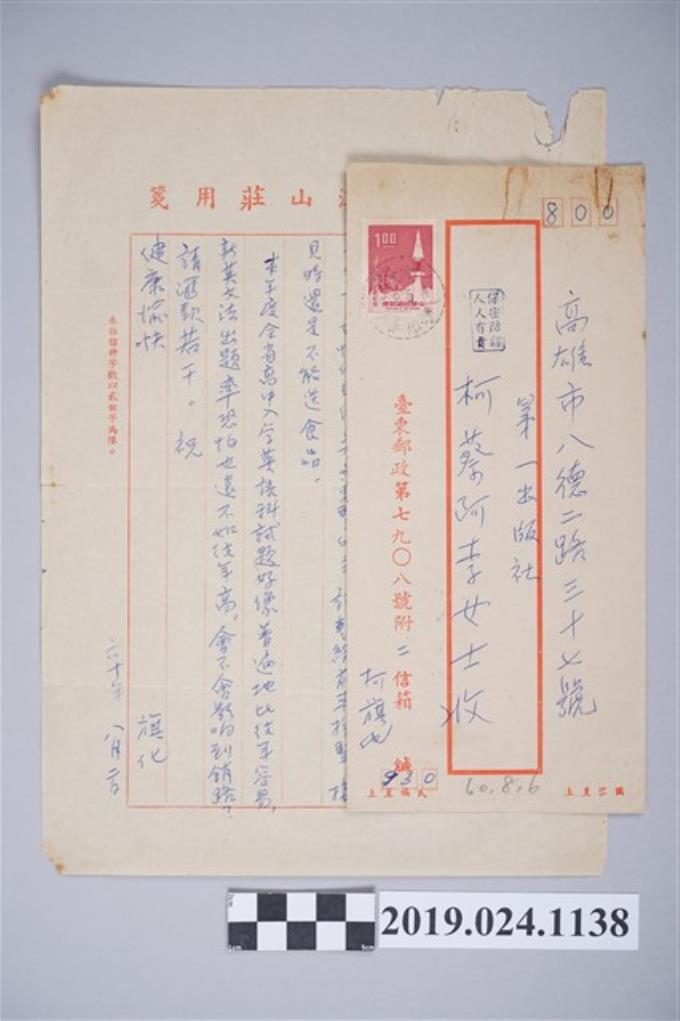 山莊用箋
見時還是不能送食品。
本年度全省高中入学英語科試題好像普遍地比往年容易,
新英文法出題率恐怕也遠不如往年高,會不會影响到銷路?
請滙款若干。祝
健康愉快
旗化
六十年 八月二日
本箱信件字數以貳佰字為限。
800
高雄市八德二路三十七號
第一出版社
柯蔡阿李女士收
1.00
保密防諜
人人有責
臺東郵政第七九〇八號附二信箱
柯旗化
緘
930
60.8.6
2019.024.1138